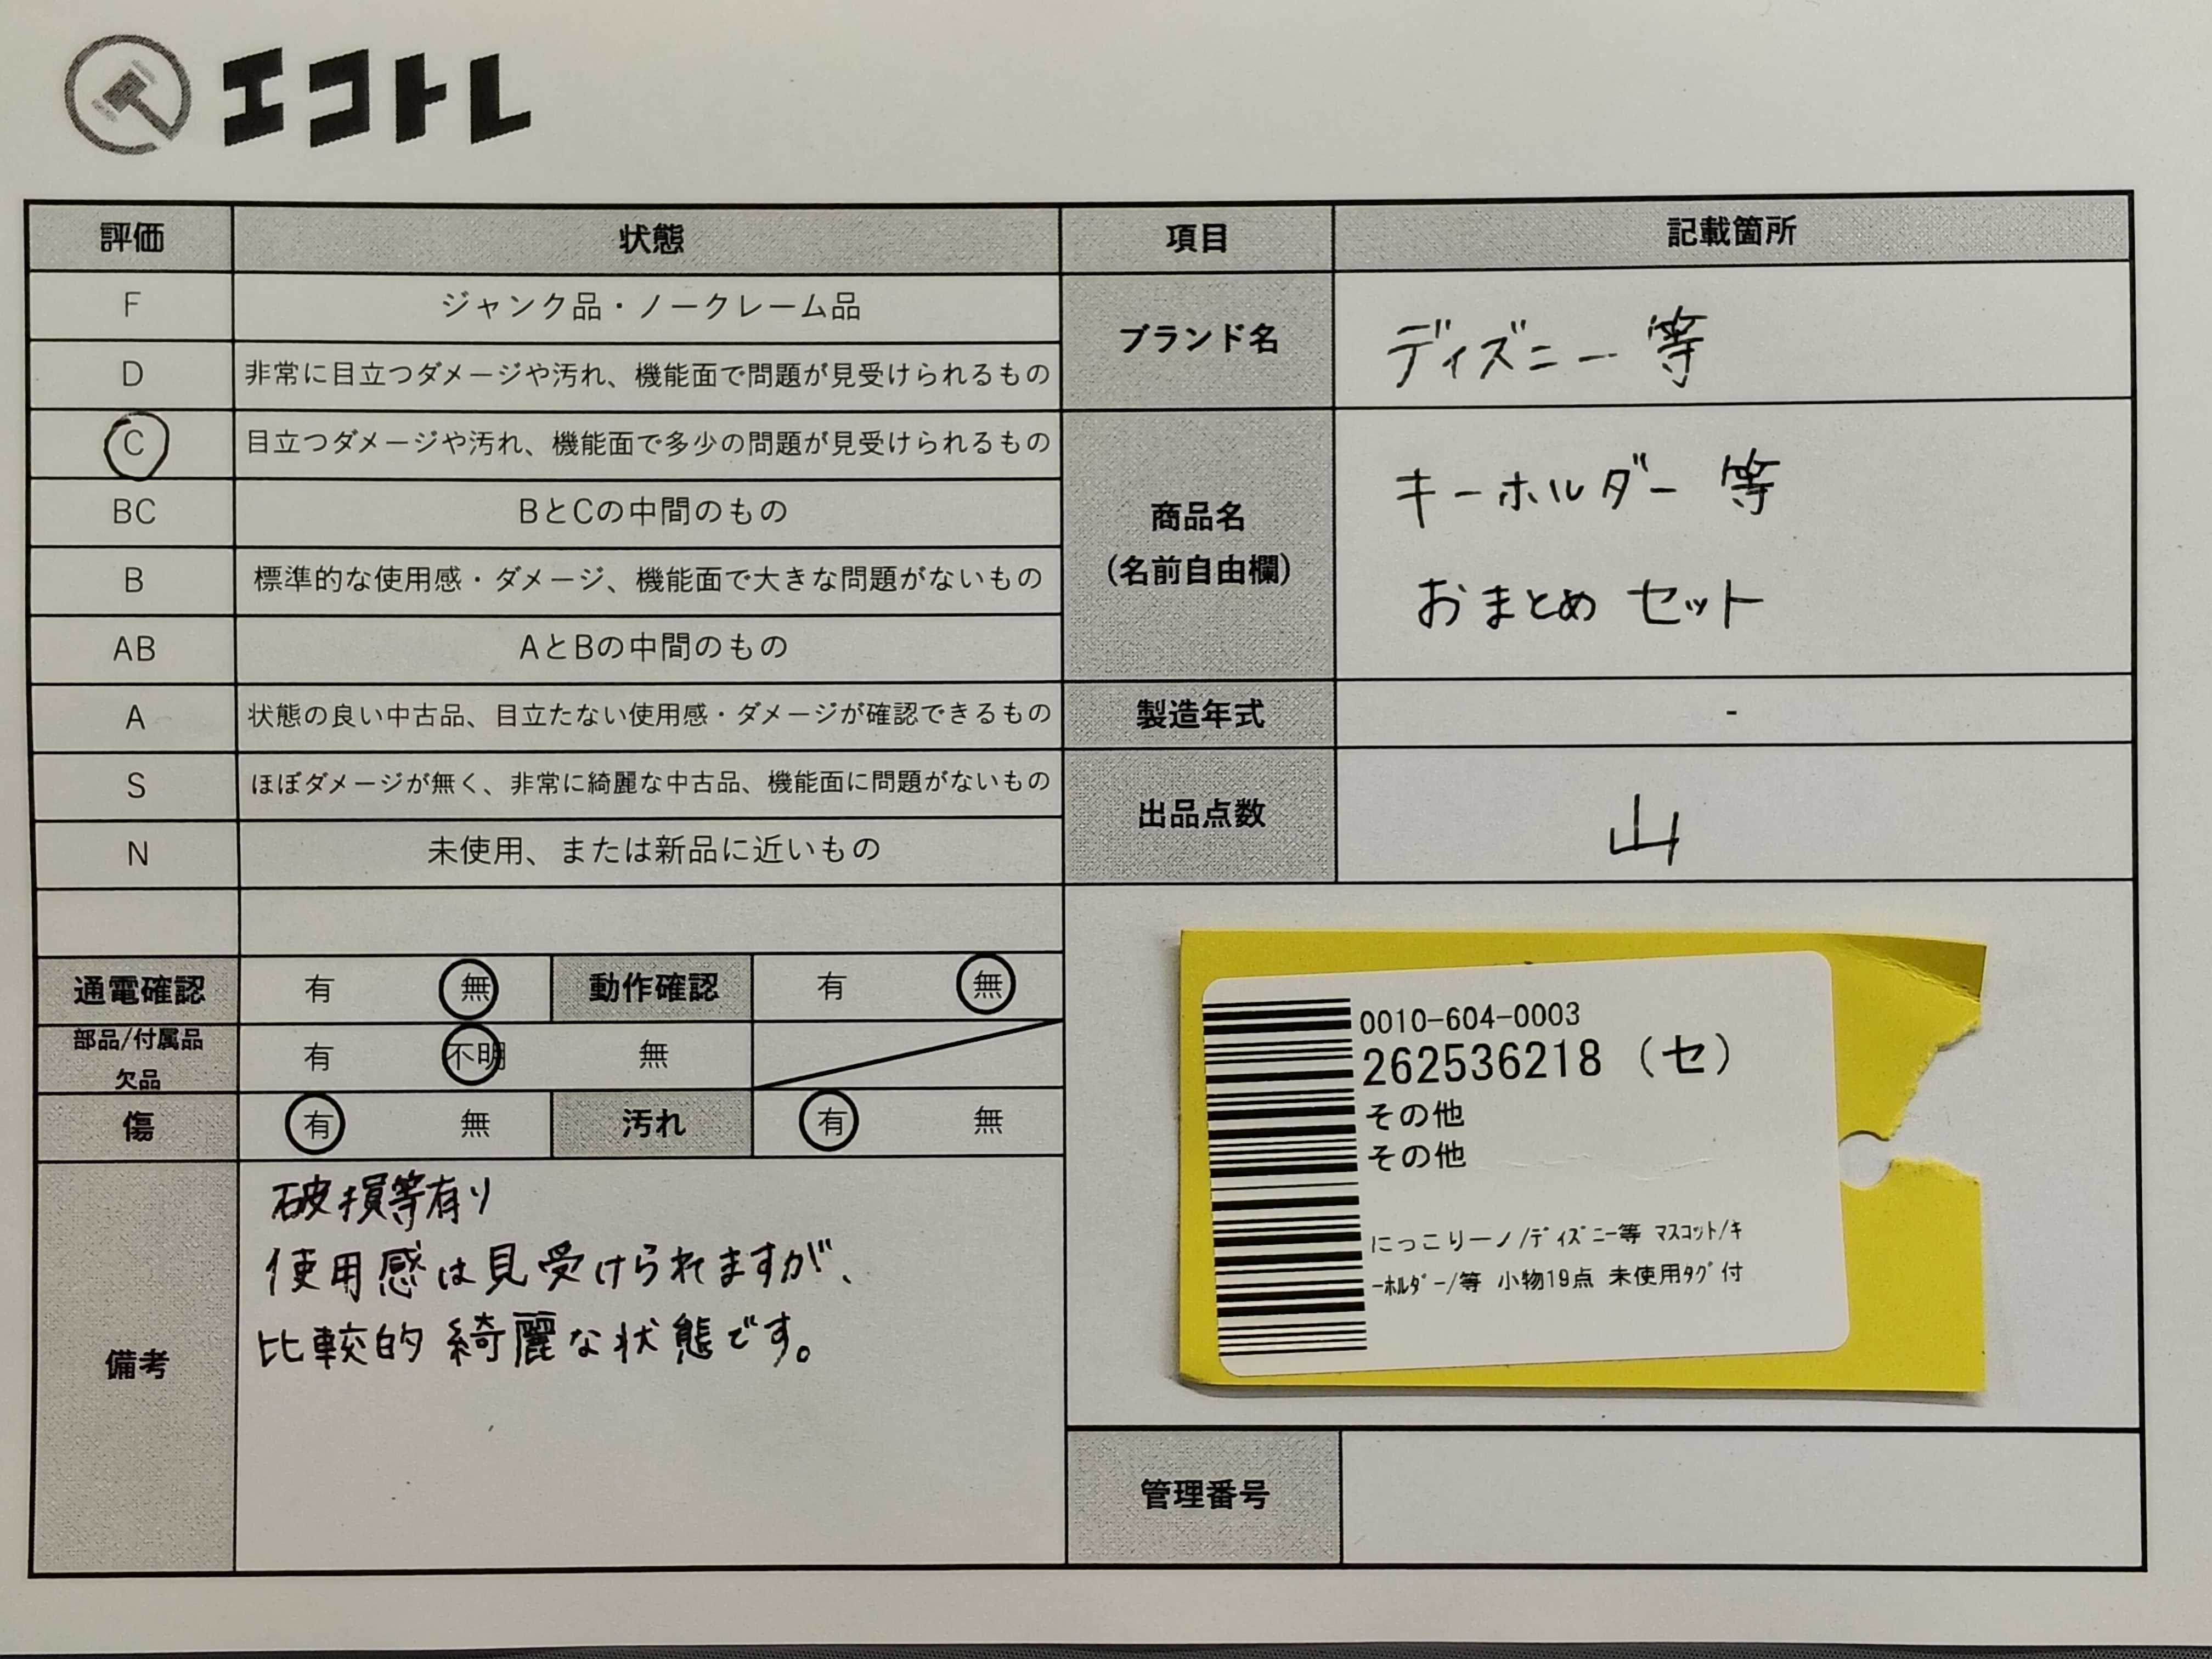 エコトレ
評価 状態 項目 記載箇所
F ジャンク品・ノークレーム品
D 非常に目立つダメージや汚れ、機能面で問題が見受けられるもの
C 目立つダメージや汚れ、機能面で多少の問題が見受けられるもの
BC BとCの中間のもの
B 標準的な使用感・ダメージ、機能面で大きな問題がないもの
AB AとBの中間のもの
A 状態の良い中古品、目立たない使用感・ダメージが確認できるもの
S ほぼダメージが無く、非常に綺麗な中古品、機能面に問題がないもの
N 未使用、または新品に近いもの
ブランド名 ディズニー 等
商品名
(名前自由欄)
キーホルダー 等
おまとめ セット
製造年式 -
出品点数 山
通電確認 有 無 動作確認 有 無
部品/付属品
欠品
有 不明 無
傷 有 無 汚れ 有 無
備考
破損等有り
使用感は見受けられますが、
比較的 綺麗な状態です。
0010-604-0003
262536218 (セ)
その他
その他
にっこりーノ/ディズニー等 マスコット/キ
ーホルダー/等 小物19点 未使用タグ付
管理番号